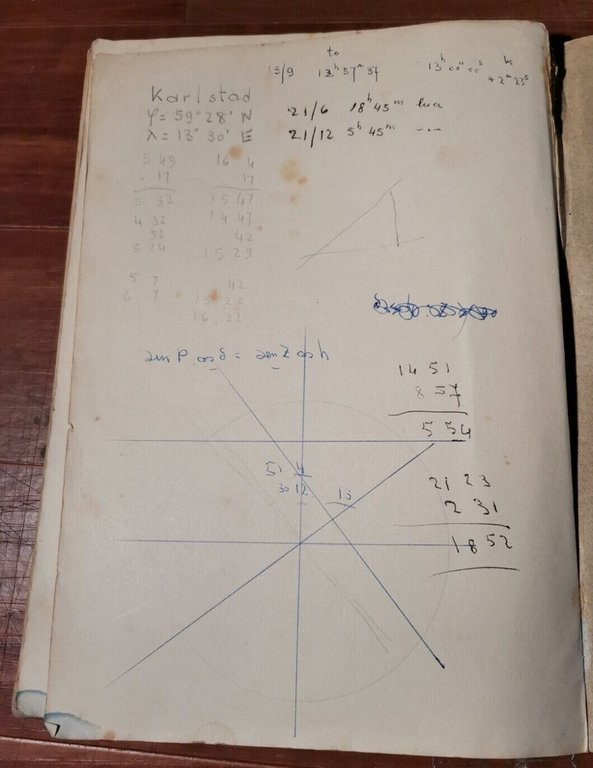 to
13/9 12ʰ57ᵐ37 13ʰ00ᵐ00ˢ k
+2ᵐ23ˢ
Karlstad
φ = 59° 28' N
λ = 13° 30' E
21/6 18ʰ 45ᵐ luce
21/12 5ʰ 45ᵐ —··—
5 49 16 4
- 17 17
5 32 15 47
4 32 14 47
52 42
5 24 15 29
5 7 42
6 7 15 22
16 22
sen P cos δ = sen Z cos h
14 51
8 57
5 54
51 4
30 12
13
21 23
2 31
18 52